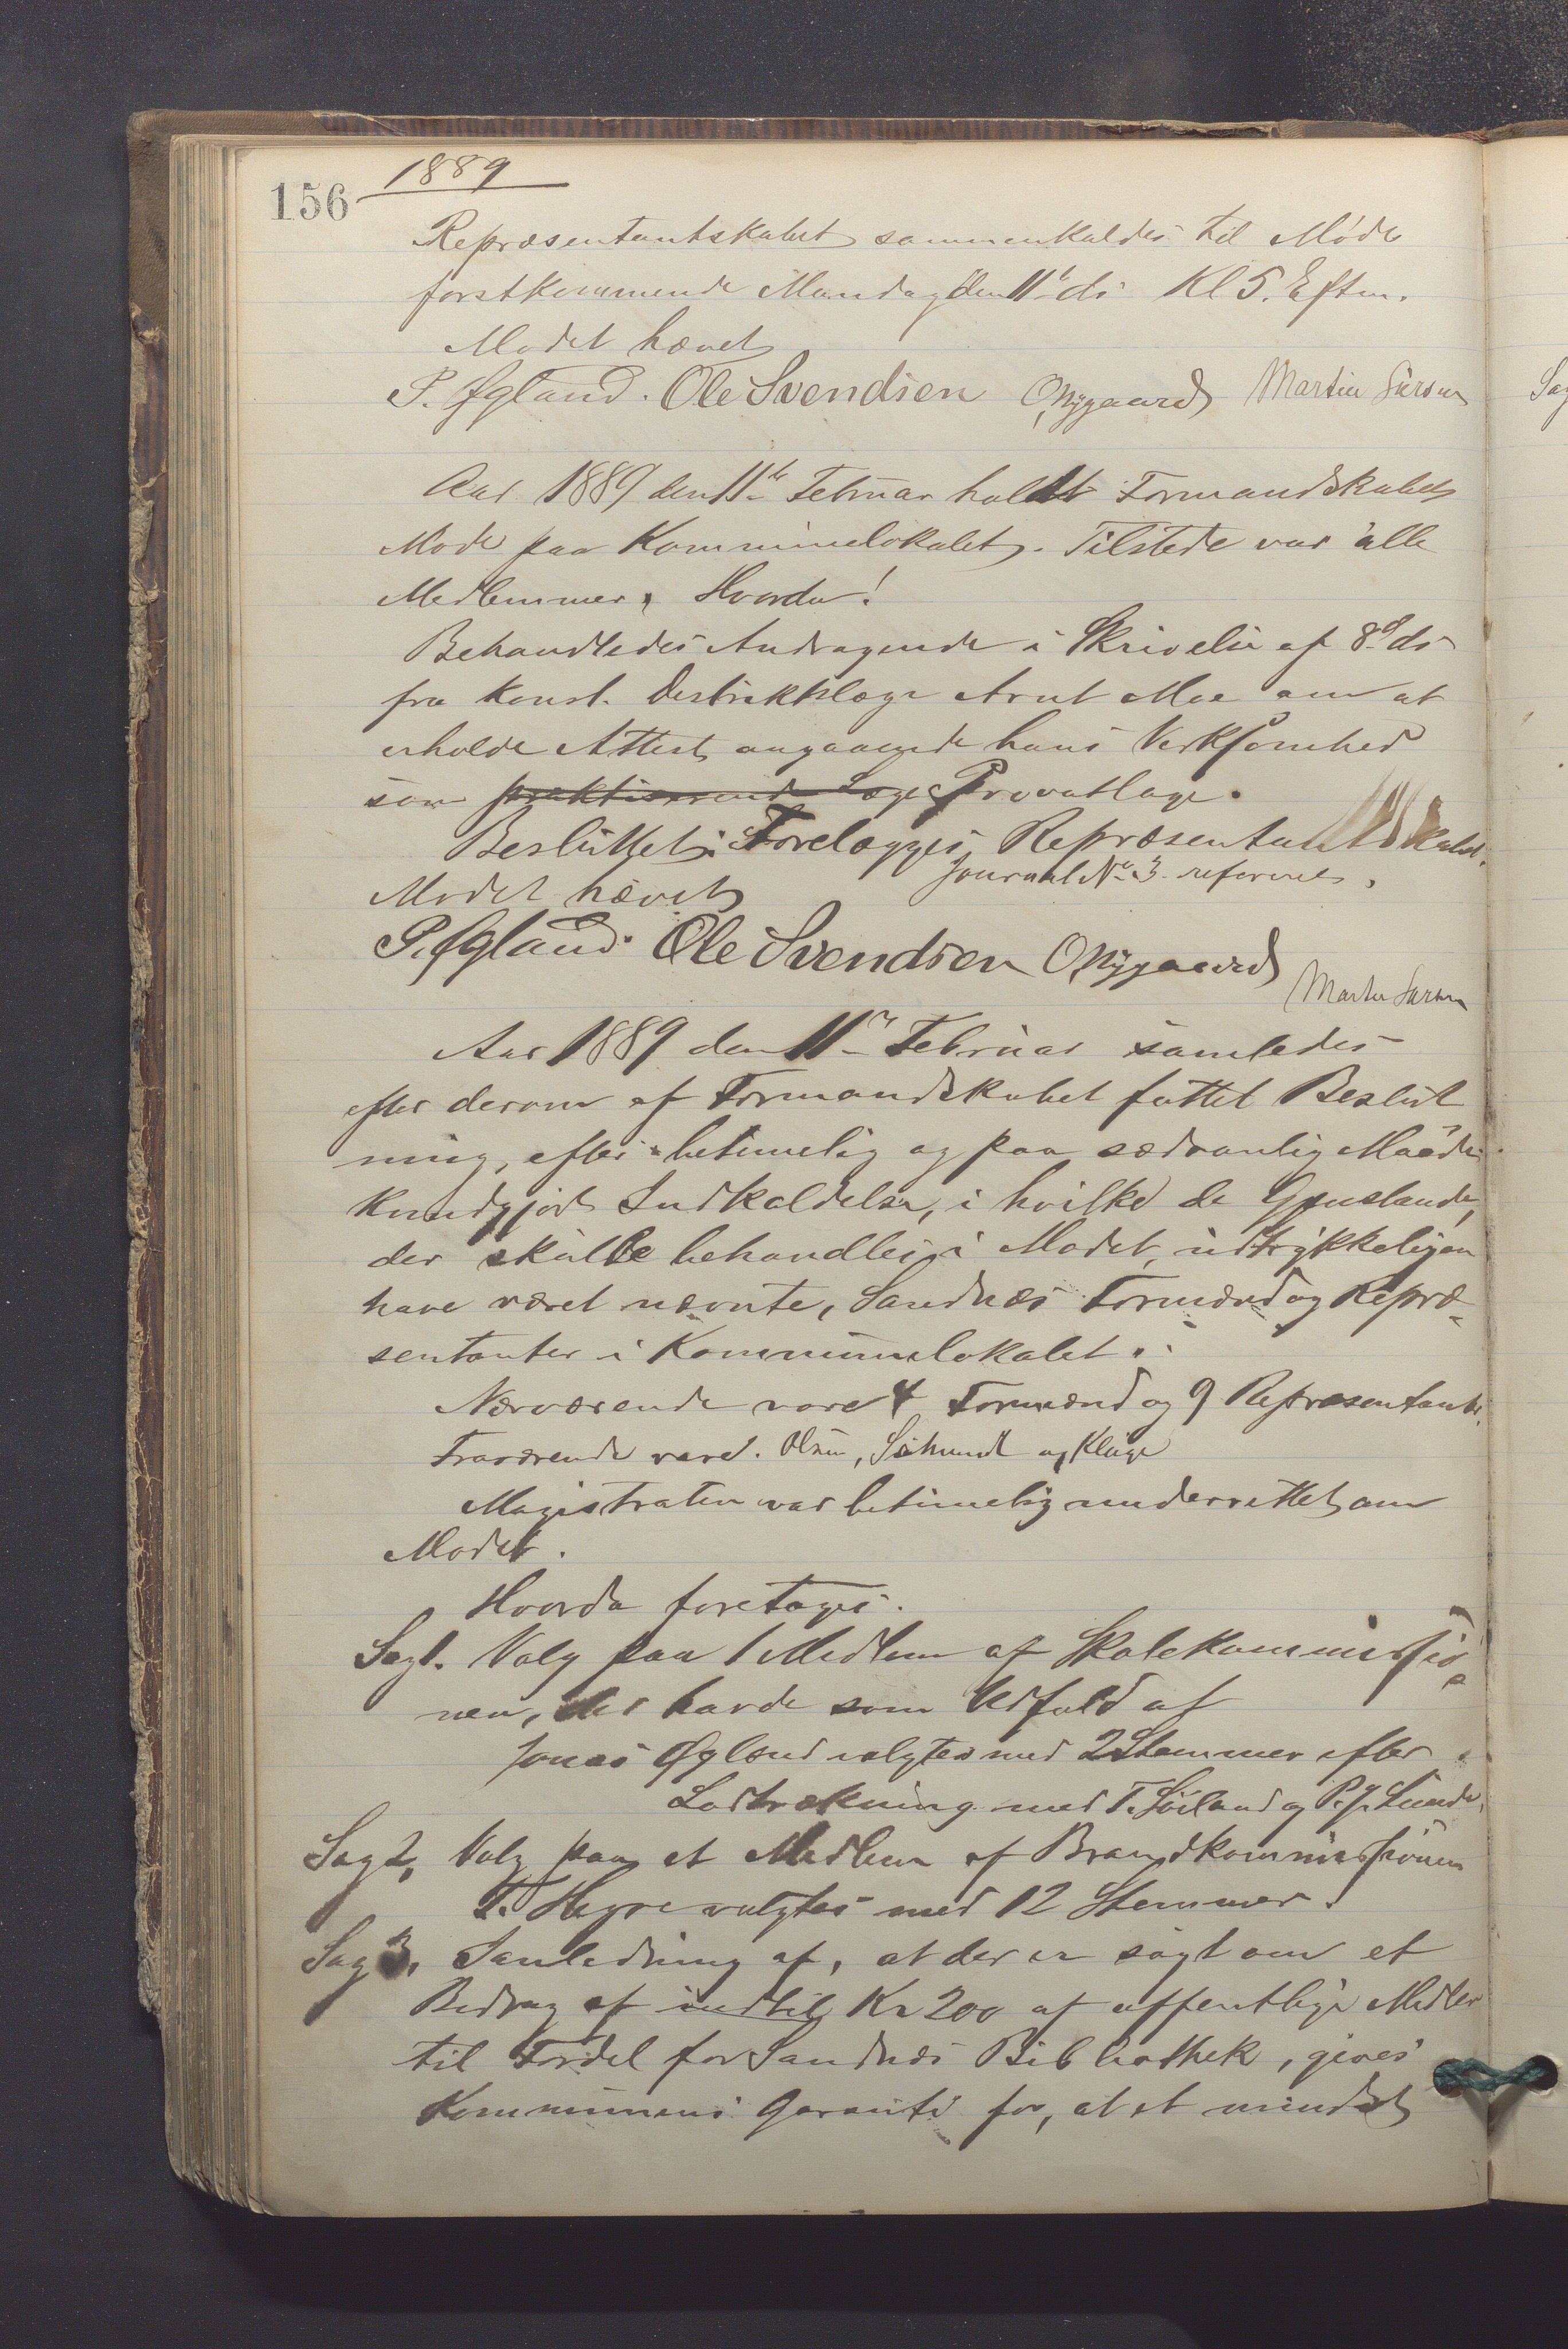 156
1889
Repræsentantskabet sammenkaldes til Møde
førstkommende Mandag den 11te ds Kl 5. Eftm.
Mødet hævet
P. Øgland. Ole Svendsen O, Nygaard Martin
Aar 1889 den 11te Februar holdt Formandskabet
Møde paa Kommunelokalet. Tilstede var alle
Medlemmer, Hvorda!
Behandledes Andragende i Skrivelse af 8d ds
fra Konst. Distriktslæge Arnt Moe om at
erholde Attest angaaende hans Virksomhed
som praktiserende Læge Privatlæge.
Besluttet: Forelægges Repræsentantskabet.
Journal No 3 refereres.
Mødet hævet
P. Øgland. Ole Svendsen O, Nygaard
Martin
Aar 1889 den 11te Februar samledes
efter derom af Formandskabet fattet Beslut
ning, efter betimelig og paa sædvanlig Maade
kundgjort Indkaldelse, i hvilke de Gjenstande,
der skulle behandles i Mødet, udtrykkeligen
have været nævnte, Sandnæs Formænd og Repræ-
sentanter i Kommunelokalet.
Nærværende vare 4 Formænd og 9 Repræsentanter.
Fraværende vare. Olsen, Schmidt og Kluge
Magistraten var betimelig underrettet om
Mødet.
Hvorda foretages.
Sag 1. Valg paa 1 Medlem af Skolekommissio-
nen, der havde som Udfald at
Jonas Øglænd valgtes med 2 Stemmer efter
Lodtrækning med T. Søiland og P. J. Lunde.
Sag 2, Valg paa et Medlem af Brandkommissionen
T. Høyre valgtes med 12 Stemmer.
Sag 3, I anledning af, at der er søgt om et
Bidrag af indtil Kr 200 af offentlige Midler
til Fordel for Sandnæs Bibliothek, gives
Kommunens Garanti for, at et mindst
Sag